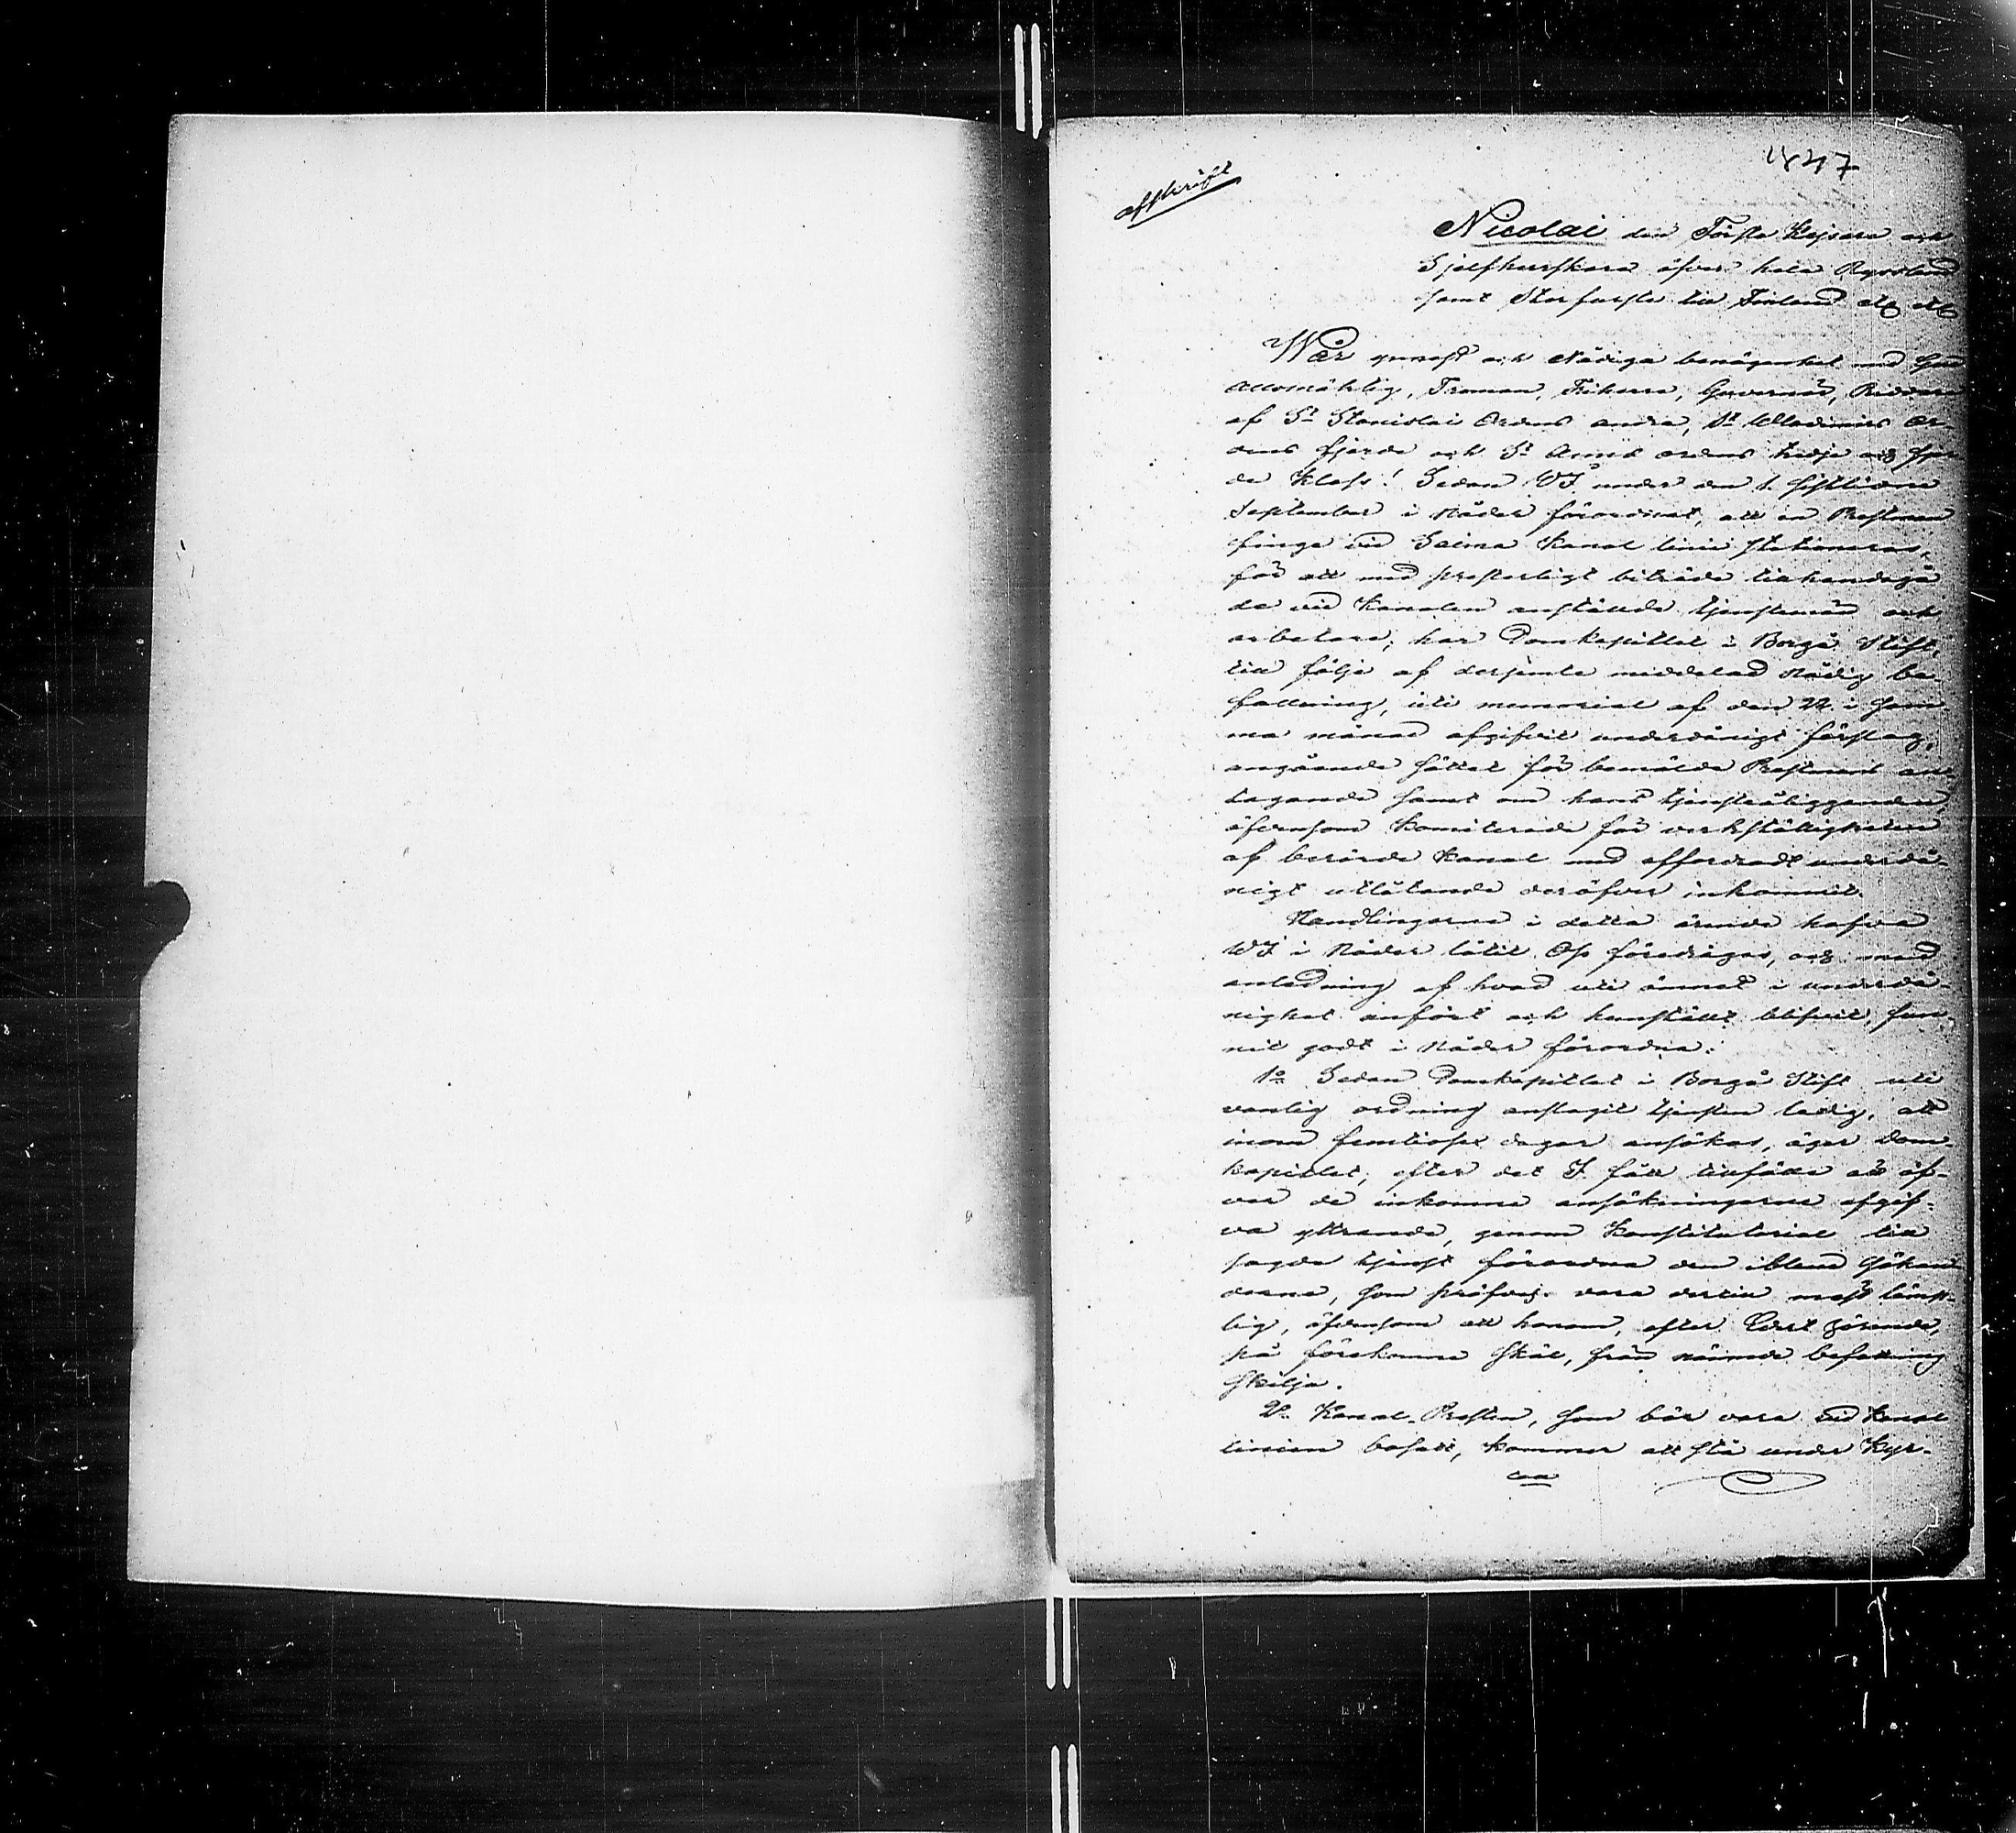 1847
afskrift
Nicolai den Förste Kejsare och
Sjelfherskare öfver hela Ryssland
samt Storfurste till Finland etc etc
Wår ynnest och Nådiga benägenhet med Gud
Allsmäktig, Troman, Friherre, Guvernör, Riddare
af St Stanislai Ordens andra, St Wladimirs Or-
dens fjerde och St Annæ ordens tredje och fjer
de Klass! Sedan WJ under den 1. sistlidne
September i Nåder förordnat, att en Prestman
finge vid Saima Kanal linie stationeras,
för att med presterligt biträde tillhandagå
de vid Kanalen anstälde tjenstemän och
arbetare; har Domkapitlet i Borgå Stift,
till följe af derjemte meddelad Nådig be
fallning, uti memorial af den 22. i sam
ma månad afgifvit underdånigt förslag,
angående sättet för bemälde Prestmans an-
tagande samt om hans tjensteåligganden
äfvensom Komiterade för verkställigheten
af berörde Kanal med affordradt underdå-
nigt utlåtande deröfver inkommit.
Handlingarne i detta ärende hafve
WJ i Nåder låtit Oss föredragas, och med
anledning af hvad uti ämnet i underdå-
nighet anfört och hemstält blifvit, fun
nit godt i Nåder förordna:
1o Sedan Domkapitlet i Borgå Stift uti
vanlig ordning anslagit tjensten ledig, att
inom femtiosex dagar ansökas, äger Dom-
kapitlet, efter det J fått tillfälle att öf-
ver de inkomne ansökningarne afgif-
va yttrande, genom Konstitutorial till
sagde tjenst förordna den ibland sökan
derne, som pröfvas vara dertill mest lämp-
lig, äfvensom att honom, efter Edert hörande,
på förekomne skäl, från nämnde befattning
skilja.
2o Kanal-Presten, som bör vara vid Kanal
linien bosatt, kommer att stå under Kyr-